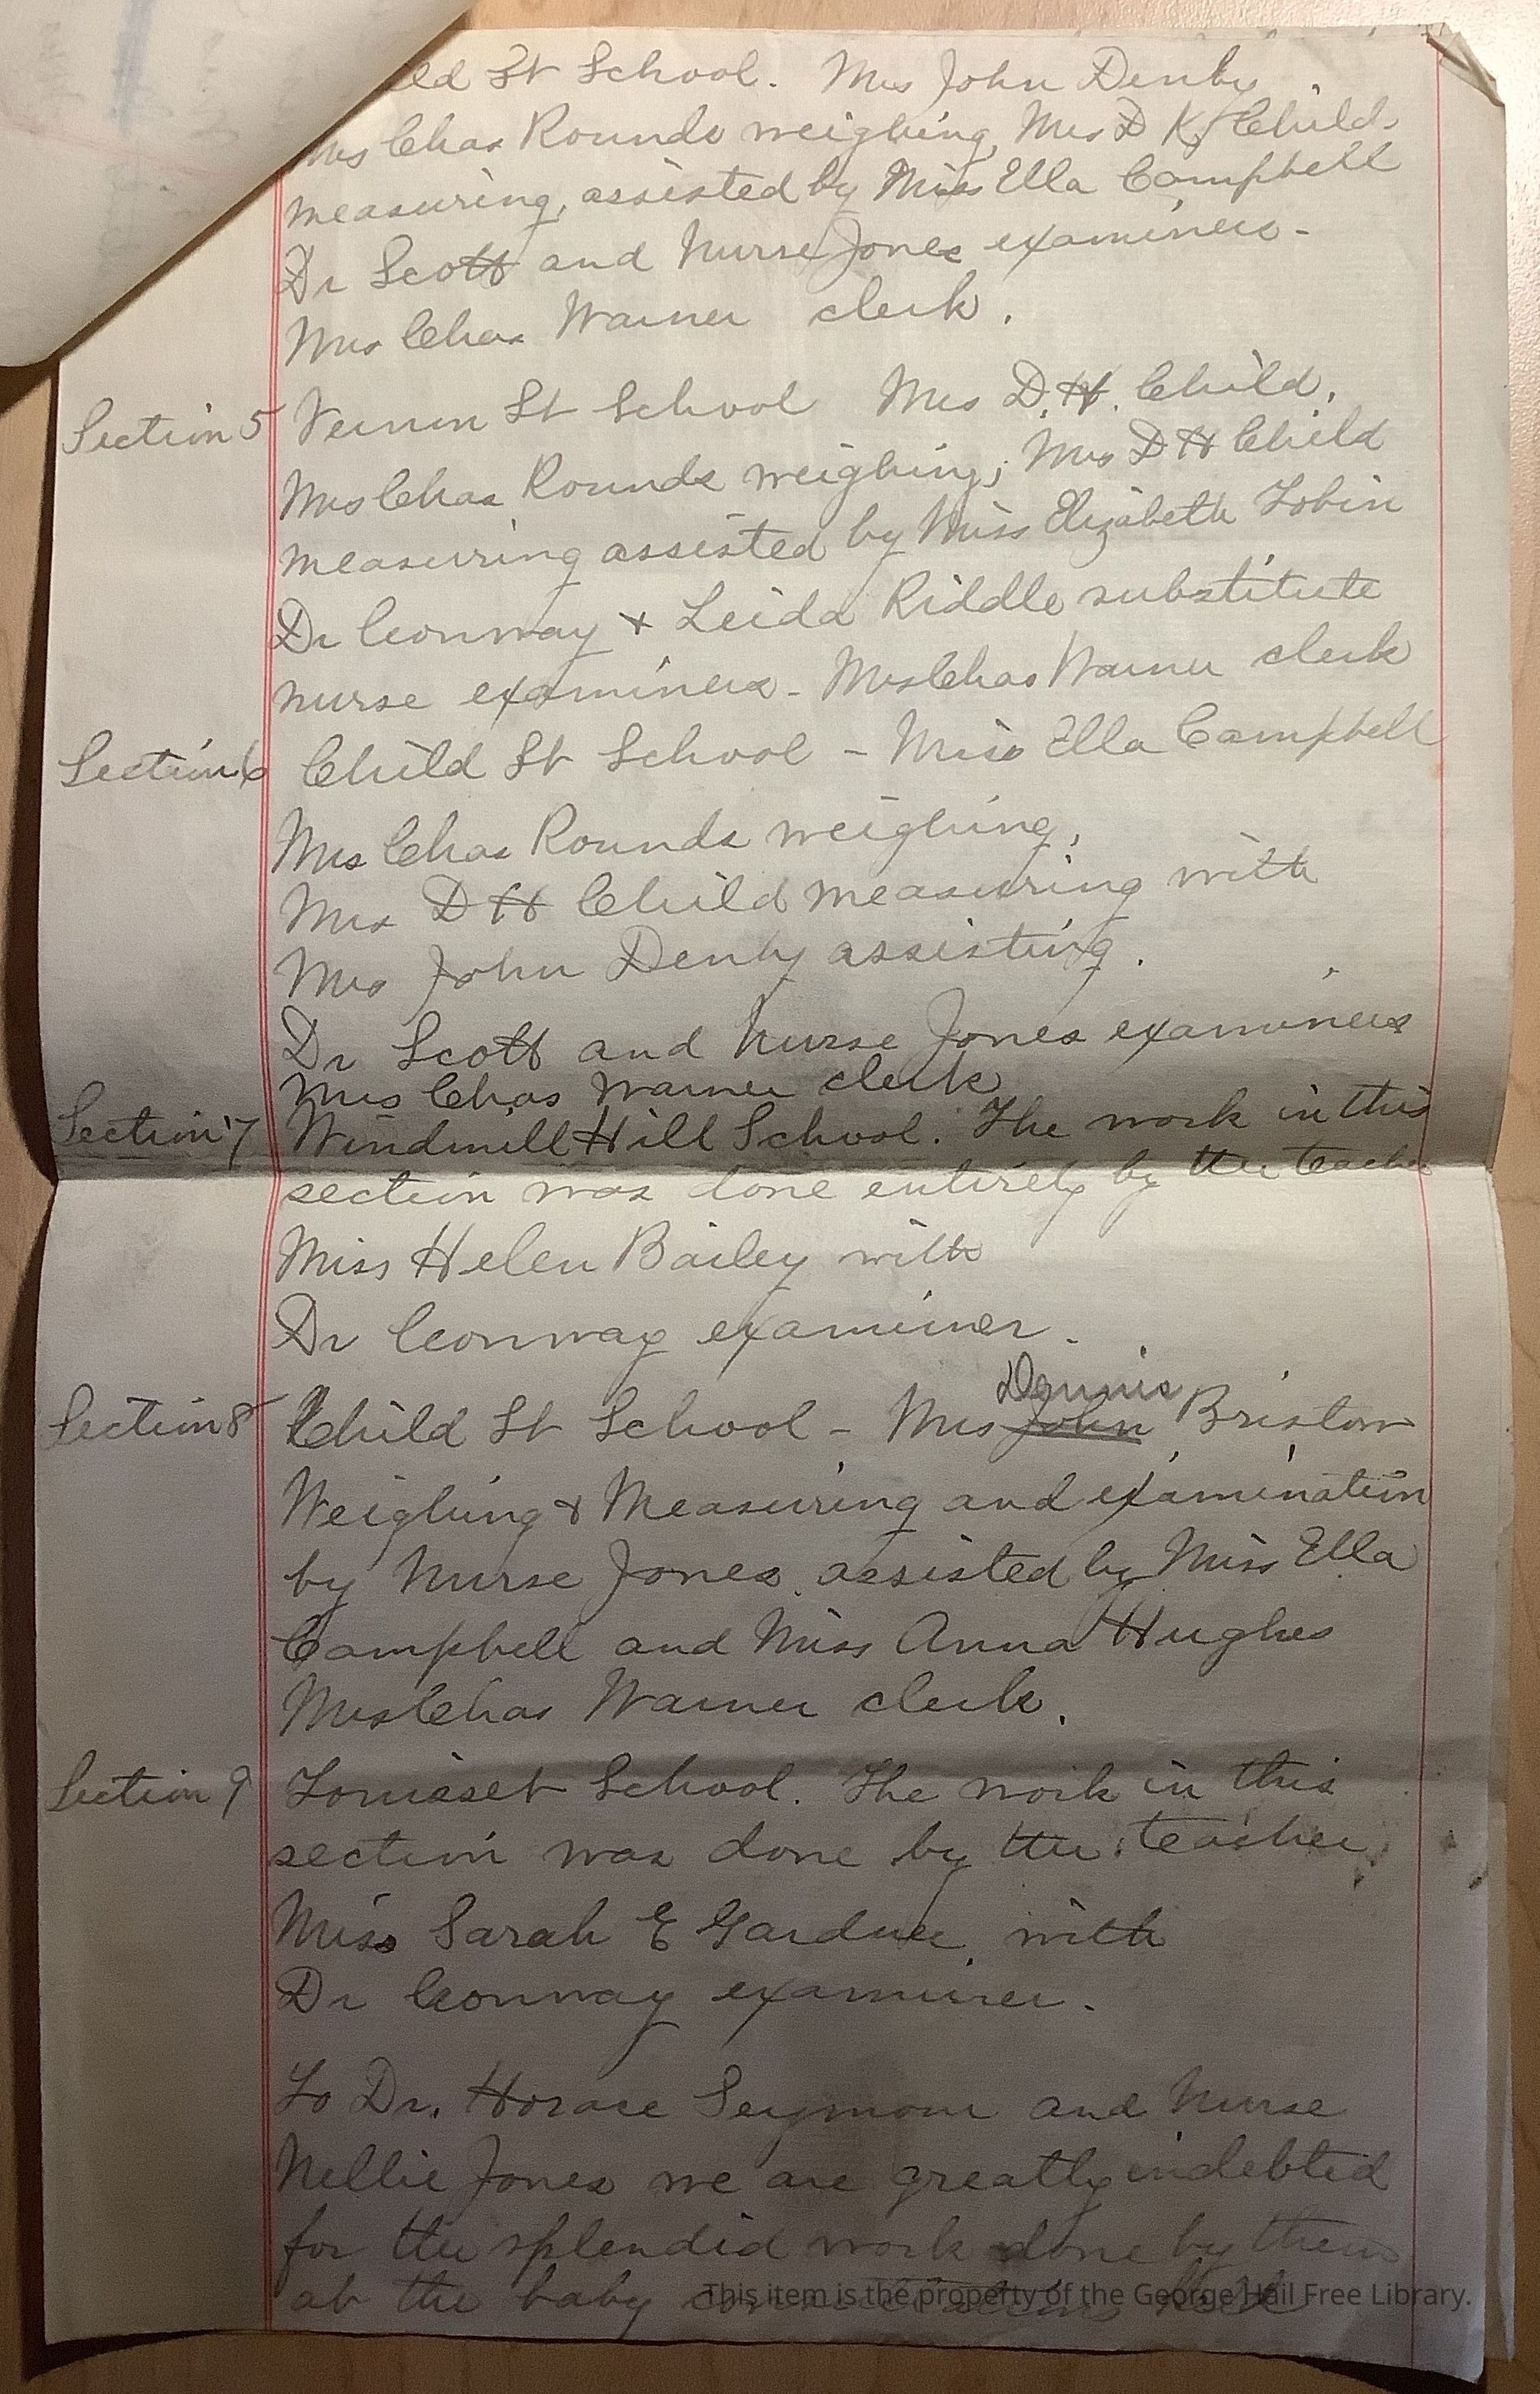 ld St School. Mrs John Denby
Mrs Chas Rounds weighing, Mrs D K Child
measuring, assisted by Miss Ella Campbell
Dr Scott and Nurse Jones examiners -
Mrs Chas Warner clerk.
Section 5 Vernon St School Mrs D. H. Child.
Mrs Chas Rounds weighing; Mrs D H Child
measuring assisted by Miss Elizabeth Tobin
Dr Conway + Leida Riddle substitute
nurse examiners - Mrs Chas Warner clerk
Section 6 Child St School - Miss Ella Campbell
Mrs Chas Rounds weighing,
Mrs D H Child measuring with
Mrs John Denby assisting.
Dr Scott and Nurse Jones examiners
Mrs Chas Warner clerk
Section 7 Windmill Hill School. The work in this
section was done entirely by the teacher
Miss Helen Bailey with
Dr Conway examiner.
Dennis
Section 8 Child St School - Mrs John Bristow
Weighing & Measuring and examination
by Nurse Jones assisted by Miss Ella
Campbell and Miss Anna Hughes
Mrs Chas Warner clerk.
Section 9 Touisset School. The work in this
section was done by the teacher
Miss Sarah E Gardner with
Dr Conway examiner.
To Dr. Horace Seymour and Nurse
Nellie Jones we are greatly indebted
for the splendid work done by them
at the baby
This item is the property of the George Hail Free Library.